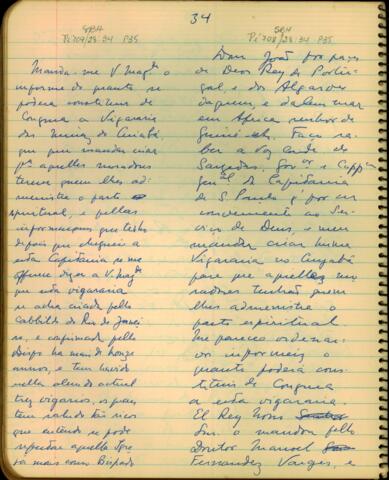 34
SBH
Pi 709/28:34 P35
Manda-me V Magde o
informe de quanto se
poderá constituir de
Congrua a Vigararia
das Minas de Cuiabá,
que quer mandar criar
pa aquelles moradores
terem quem lhes ad-
ministre o pasto es-
piritual, e pellas
informaçoens que tenho
depois que cheguei a
esta Capitania se me
offerece dizer a V. Magde
que esta vigararia
se acha criada pello
Cabbido do Rio de Janei-
ro, e confirmada pello
Bispo ha mais de honze
annos, e tem havido
nella alem do actual
tres vigarios, os quaes
tem sahido tão ricos
que entendo se pode
reputar aquella Igre-
ja mais como Bispado
SBH
Pi 708/28:34 P35
Dom João por graça
de Deos Rey de Portu-
gal, e dos Algarves
daquem, e dalem mar
em Africa senhor de
Guiné etc. Faço sa-
ber a Voz Conde de
Sarzedas, Gor. e Cappm
genal da Capitania
de S. Paulo q' por ser
conveniente ao Ser-
viço de Deus, e meu
mandar criar huma
Vigararia no Cuyabá
para que aquelles mo-
radores tenhão quem
lhes administre o
pasto espiritual.
Me pareceo ordenar
vos informeis o
quanto poderá cons-
tituir de Congrua
a esta vigararia.
El Rey Nosso
Snr. o mandou pello
Doutor Manoel
Fernandez Varges, e